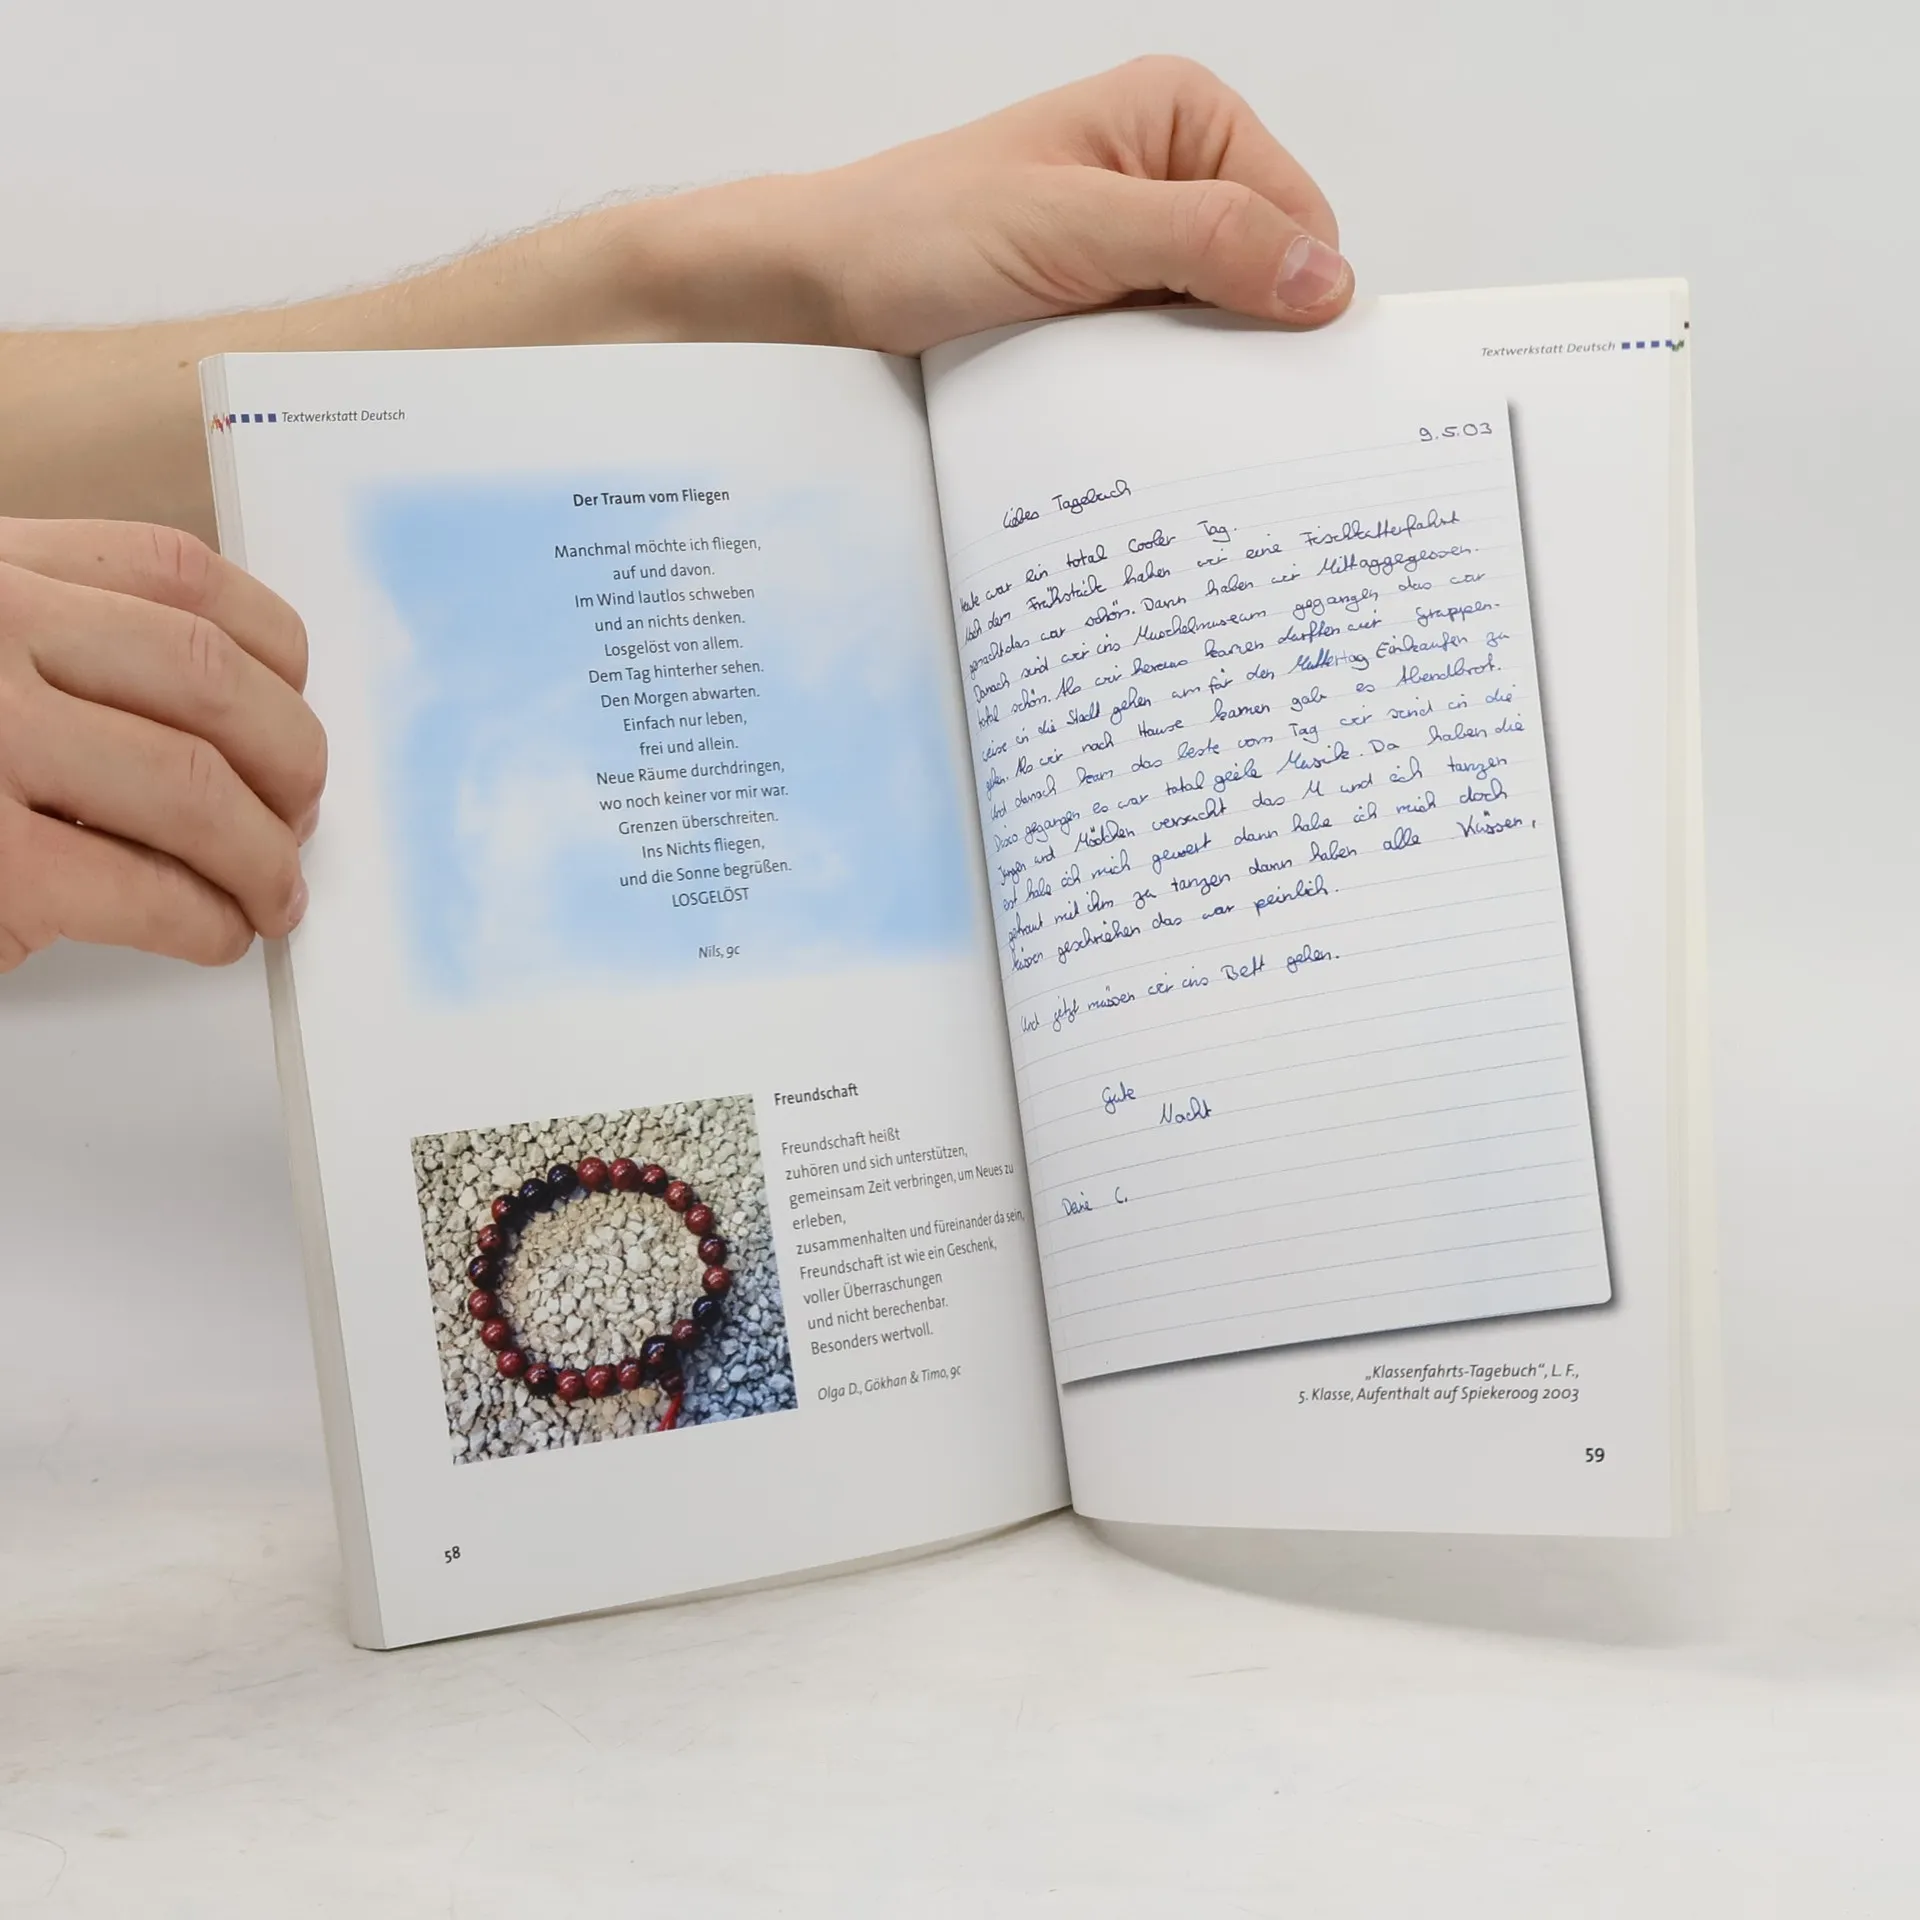 Textwerkstatt Deutsch
Der Traum vom Fliegen
Manchmal möchte ich fliegen,
auf und davon.
Im Wind lautlos schweben
und an nichts denken.
Losgelöst von allem.
Dem Tag hinterher sehen.
Den Morgen abwarten.
Einfach nur leben,
frei und allein.
Neue Räume durchdringen,
wo noch keiner vor mir war.
Grenzen überschreiten.
Ins Nichts fliegen,
und die Sonne begrüßen.
LOSGELÖST
Nils, 9c
Freundschaft
Freundschaft heißt
zuhören und sich unterstützen,
gemeinsam Zeit verbringen, um Neues zu
erleben,
zusammenhalten und füreinander da sein,
Freundschaft ist wie ein Geschenk,
voller Überraschungen
und nicht berechenbar.
Besonders wertvoll.
Olga D., Gökhan & Timo, 9c
58
Textwerkstatt Deutsch
9.5.03
Liebes Tagebuch
Heute war ein total cooler Tag.
Nach dem Frühstück haben wir eine Fischkutterfahrt
gemacht das war schön. Dann haben wir Mittaggegessen.
Danach sind wir ins Muschelmuseum gegangen das war
total schön. Als wir heraus kamen durften wir Gruppen-
weise in die Stadt gehen um für den Muttertag Einkaufen zu
gehen. Als wir nach Hause kamen gab es Abendbrot.
Und danach kam das beste vom Tag wir sind in die
Disco gegangen es war total geile Musik. Da haben die
Jungen und Mädchen versucht das M und ich tanzen
erst habe ich mich gewert dann habe ich mich doch
getraut mit ihm zu tanzen dann haben alle Küssen,
küssen geschriehen das war peinlich.
Und jetzt müssen wir ins Bett gehen.
Gute
Nacht
C.
„Klassenfahrts-Tagebuch“, L. F.,
5. Klasse, Aufenthalt auf Spiekeroog 2003
59